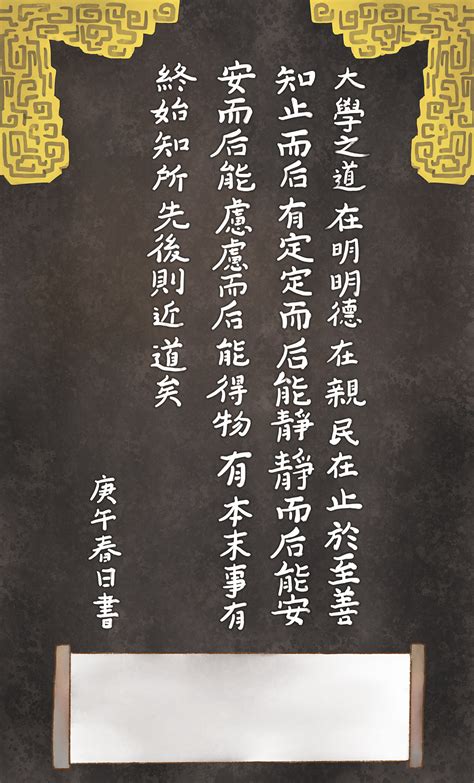 大學之道在明明德在親民在止於至善
知止而后有定定而后能靜靜而后能安
安而后能慮慮而后能得物有本末事有
終始知所先後則近道矣
庚午春日書